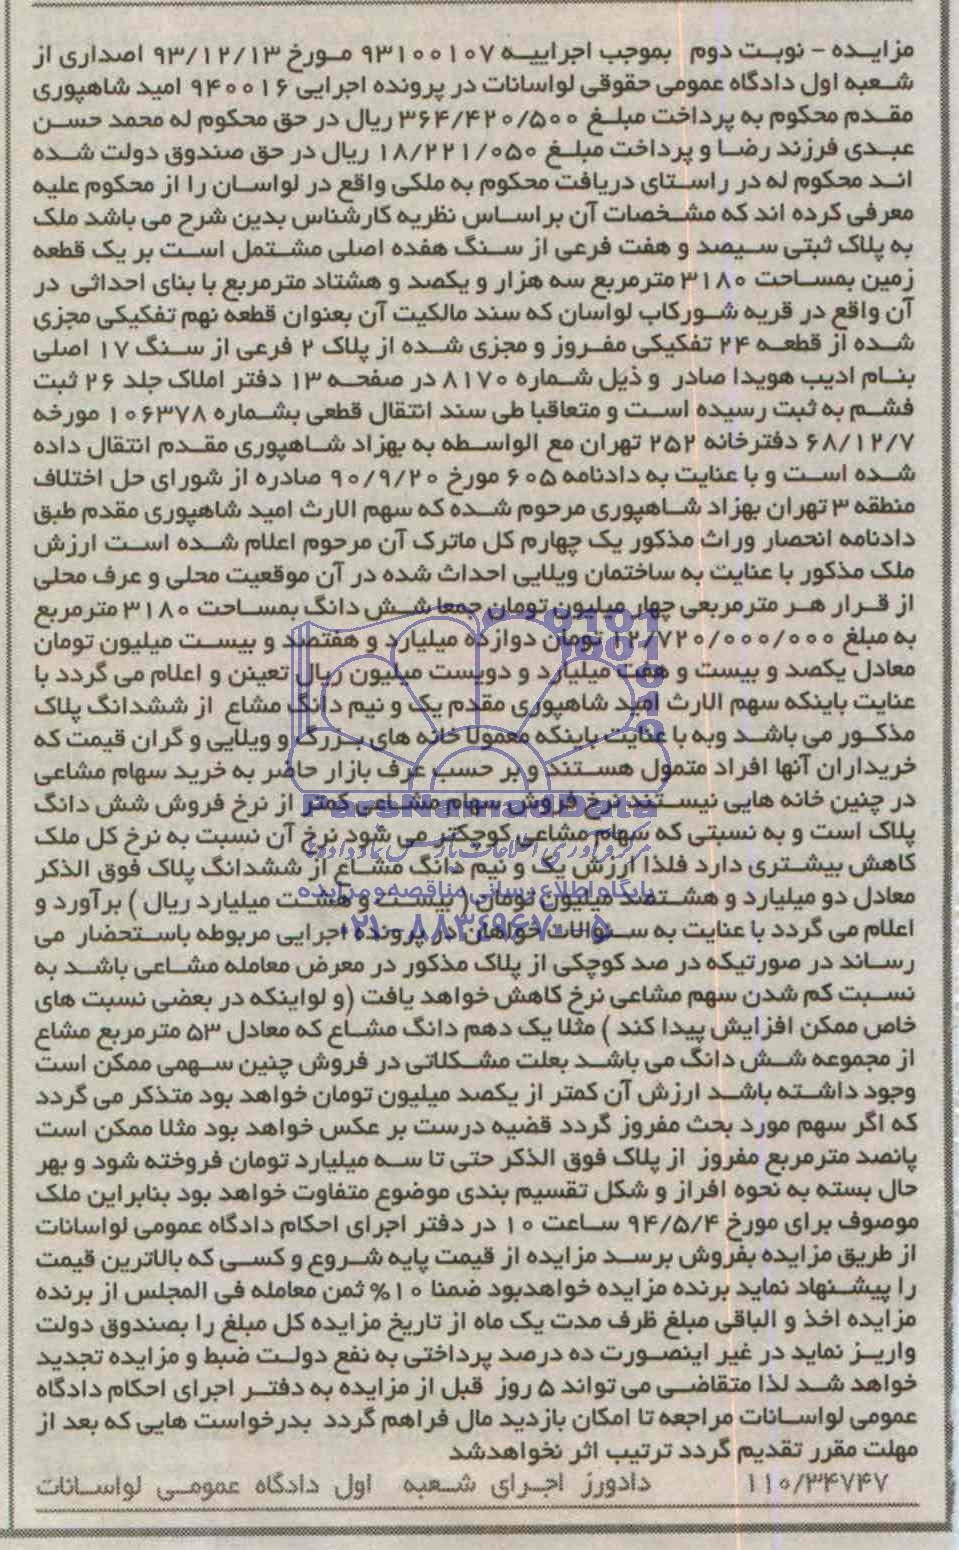 مزایده - نوبت دوم بموجب اجراییه ۹۳۱۰۰۱۰۷ مورخ ۹۳/۱۲/۱۳ اصداری از
شعبه اول دادگاه عمومی حقوقی لواسانات در پرونده اجرایی ۹۴۰۰۱۶ امید شاهپوری
مقدم محکوم به پرداخت مبلغ ۳۶۴/۴۲۰/۵۰۰ ریال در حق محکوم له محمد حسن
عبدی فرزند رضا و پرداخت مبلغ ۱۸/۲۲۱/۰۵۰ ریال در حق صندوق دولت شده
اند محکوم له در راستای دریافت محکوم به ملکی واقع در لواسان را از محکوم علیه
معرفی کرده اند که مشخصات آن براساس نظریه کارشناس بدین شرح می باشد ملک
به پلاک ثبتی سیصد و هفت فرعی از سنگ هفده اصلی مشتمل است بر یک قطعه
زمین بمساحت ۳۱۸۰ مترمربع سه هزار و یکصد و هشتاد مترمربع با بنای احداثی در
آن واقع در قریه شورکاب لواسان که سند مالکیت آن بعنوان قطعه نهم تفکیکی مجزی
شده از قطعه ۲۴ تفکیکی مفروز و مجزی شده از پلاک ۲ فرعی از سنگ ۱۷ اصلی
بنام ادیب هویدا صادر و ذیل شماره ۸۱۷۰ در صفحه ۱۳ دفتر املاک جلد ۲۶ ثبت
فشم به ثبت رسیده است و متعاقبا طی سند انتقال قطعی بشماره ۱۰۶۳۷۸ مورخه
۶۸/۱۲/۷ دفترخانه ۲۵۲ تهران مع الواسطه به بهزاد شاهپوری مقدم انتقال داده
شده است و با عنایت به دادنامه ۶۰۵ مورخ ۹۰/۹/۲۰ صادره از شورای حل اختلاف
منطقه ۳ تهران بهزاد شاهپوری مرحوم شده که سهم الارث امید شاهپوری مقدم طبق
دادنامه انحصار وراث مذکور یک چهارم کل ماترک آن مرحوم اعلام شده است ارزش
ملک مذکور با عنایت به ساختمان ویلایی احداث شده در آن موقعیت محلی و عرف محلی
از قرار هر مترمربعی چهار میلیون تومان جمعا شش دانگ بمساحت ۳۱۸۰ مترمربع
به مبلغ ۱۲/۷۲۰/۰۰۰/۰۰۰ تومان دوازده میلیارد و هفتصد و بیست میلیون تومان
معادل یکصد و بیست و هفت میلیارد و دویست میلیون ریال تعیین و اعلام می گردد با
عنایت باینکه سهم الارث امید شاهپوری مقدم یک و نیم دانگ مشاع از ششدانگ پلاک
مذکور می باشد وبه با عنایت باینکه معمولا خانه های بزرگ و ویلایی و گران قیمت که
خریداران آنها افراد متمول هستند و بر حسب عرف بازار حاضر به خرید سهام مشاعی
در چنین خانه هایی نیستند نرخ فروش سهام مشاعی کمتر از نرخ فروش شش دانگ
پلاک است و به نسبتی که سهام مشاعی کوچکتر می شود نرخ آن نسبت به نرخ کل ملک
کاهش بیشتری دارد فلذا ارزش یک و نیم دانگ مشاع از ششدانگ پلاک فوق الذکر
معادل دو میلیارد و هشتصد میلیون تومان ( بیست و هشت میلیارد ریال ) برآورد و
اعلام می گردد با عنایت به سئوالات خواهان در پرونده اجرایی مربوطه باستحضار می
رساند در صورتیکه در صد کوچکی از پلاک مذکور در معرض معامله مشاعی باشد به
نسبت کم شدن سهم مشاعی نرخ کاهش خواهد یافت (و لواینکه در بعضی نسبت های
خاص ممکن افزایش پیدا کند ) مثلا یک دهم دانگ مشاع که معادل ۵۳ مترمربع مشاع
از مجموعه شش دانگ می باشد بعلت مشکلاتی در فروش چنین سهمی ممکن است
وجود داشته باشد ارزش آن کمتر از یکصد میلیون تومان خواهد بود متذکر می گردد
که اگر سهم مورد بحث مفروز گردد قضیه درست بر عکس خواهد بود مثلا ممکن است
پانصد مترمربع مفروز از پلاک فوق الذکر حتی تا سه میلیارد تومان فروخته شود و بهر
حال بسته به نحوه افراز و شکل تقسیم بندی موضوع متفاوت خواهد بود بنابراین ملک
موصوف برای مورخ ۹۴/۵/۴ ساعت ۱۰ در دفتر اجرای احکام دادگاه عمومی لواسانات
از طریق مزایده بفروش برسد مزایده از قیمت پایه شروع و کسی که بالاترین قیمت
را پیشنهاد نماید برنده مزایده خواهدبود ضمنا ۱۰% ثمن معامله فی المجلس از برنده
مزایده اخذ و الباقی مبلغ ظرف مدت یک ماه از تاریخ مزایده کل مبلغ را بصندوق دولت
واریز نماید در غیر اینصورت ده درصد پرداختی به نفع دولت ضبط و مزایده تجدید
خواهد شد لذا متقاضی می تواند ۵ روز قبل از مزایده به دفتر اجرای احکام دادگاه
عمومی لواسانات مراجعه تا امکان بازدید مال فراهم گردد بدرخواست هایی که بعد از
مهلت مقرر تقدیم گردد ترتیب اثر نخواهدشد
۱۱۰/۳۴۷۴۷ دادورز اجرای شعبه اول دادگاه عمومی لواسانات
ParsNamadData
پایگاه اطلاع رسانی مناقصه و مزایده
۰۲۱-۸۸۳۴۹۶۷۰-۵